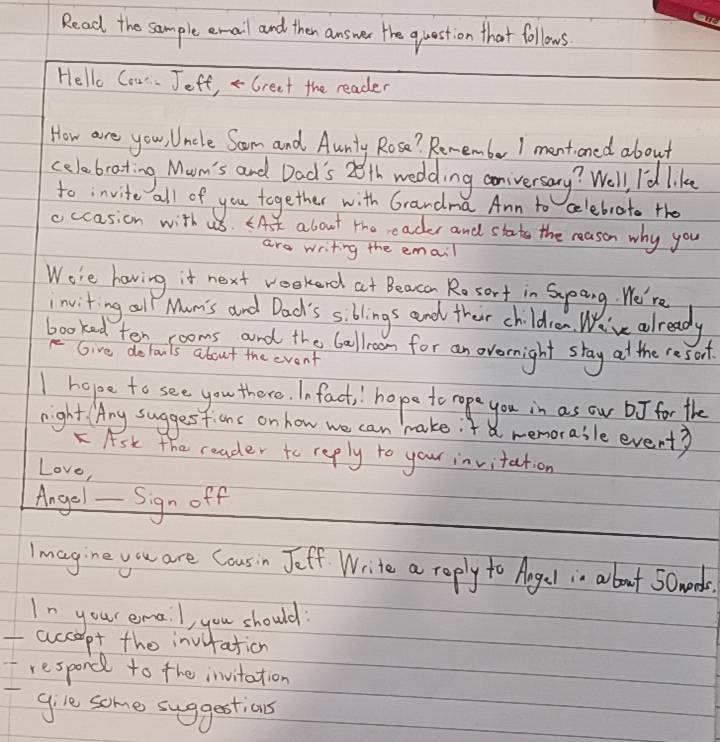 Read the sample email and then answer the question that follows.
Hello Cousin Jeff, ← Greet the reader
How are you, Uncle Sam and Aunty Rose? Remember I mentioned about
celebrating Mum's and Dad's 20th wedding anniversary? Well, I'd like
to invite all of you together with Grandma Ann to celebrate the
occasion with us. ← Ask about the reader and state the reason why you
are writing the email
We're having it next weekend at Beacon Resort in Sepang. We're
inviting all Mum's and Dad's siblings and their children. We've already
booked ten rooms and the ballroom for an overnight stay at the resort.
← Give details about the event
I hope to see you there. In fact, I hope to rope you in as our DJ for the
night. (Any suggestions on how we can make it a memorable event?)
← Ask the reader to reply to your invitation
Love,
Angel — Sign off
Imagine you are Cousin Jeff. Write a reply to Angel in about 50 words.
In your email, you should:
- accept the invitation
- respond to the invitation
- give some suggestions